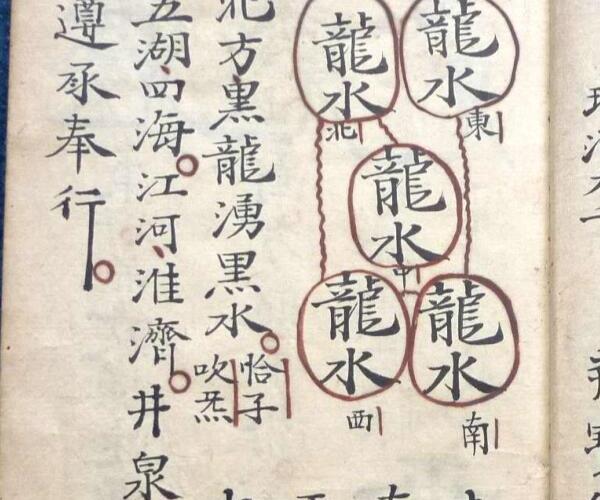 龍水 東
龍水 北
龍水 中
龍水 南
龍水 西
北方黑龍湧黑水
恰子
吹炁
五湖四海江河淮濟井泉
遵承奉行